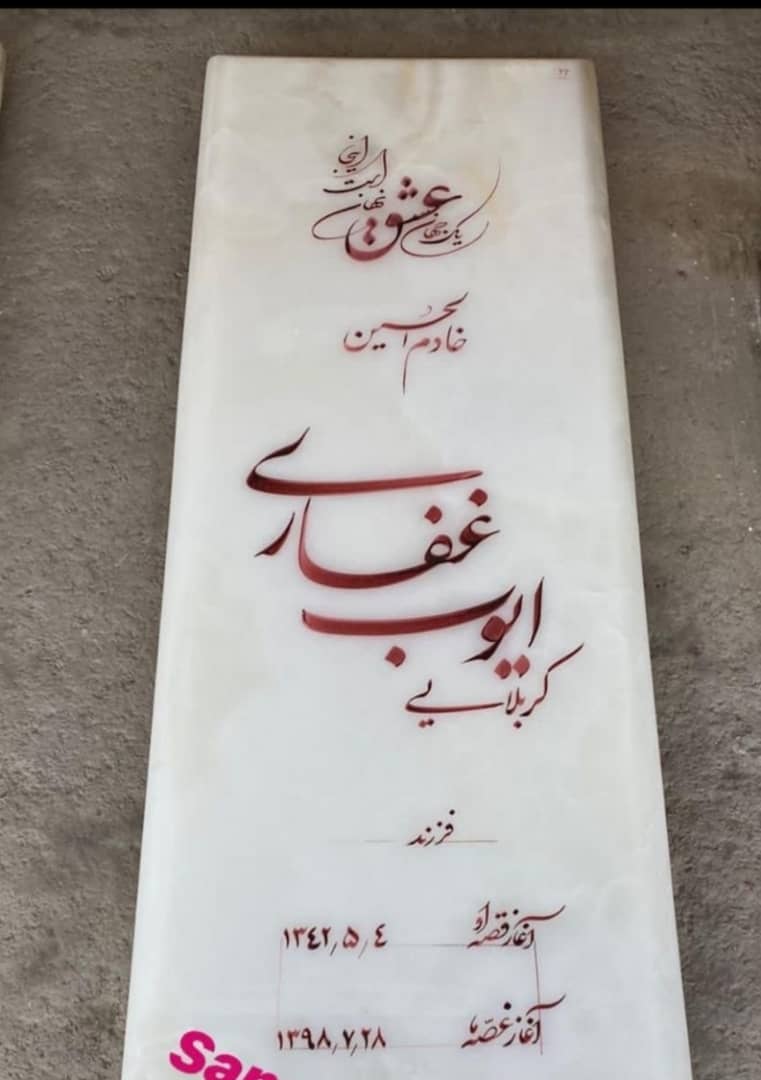 ۲۲
یک جهان عشق نهان است اینجا
خادم الحسین
کربلایی
ایوب غفاری
فرزند
آغاز قصه او ۱۳٤۲٫۵٫٤
آغاز غصّه ما ۱۳۹۸٫۷٫۲۸
San